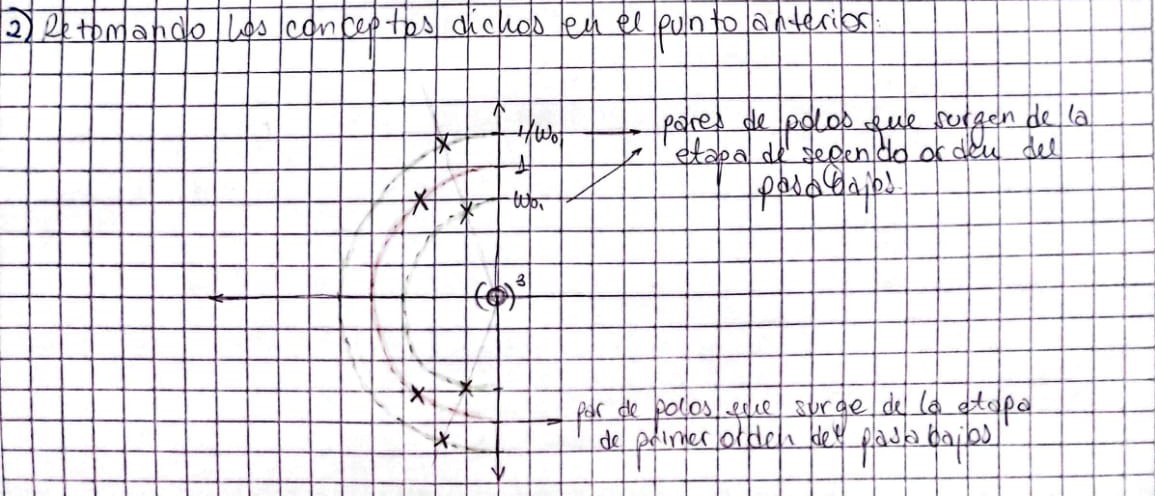 2) Retomando los conceptos dichos en el punto anterior:
1/ω₀₁
pares de polos que surgen de la
etapa de segundo orden del
pasabajos.
1
ω₀₁
(0)³
par de polos que surge de la etapa
de primer orden del pasabajos